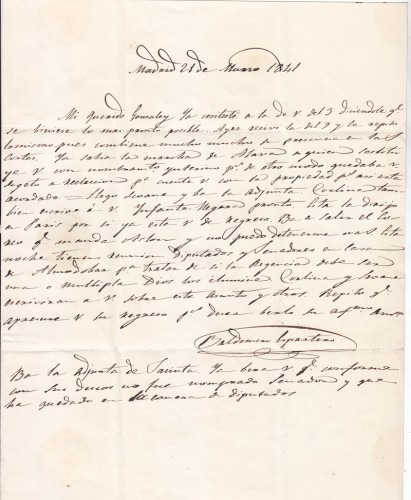 Madrid 21 de Marzo 1841
Mi querido Gonzalez Ya conteste a la de v. del 3 diciendole q.
se viniese lo mas pronto posible. Ayer recivi la del 9 y le repito
lo mismo pues combiene mucho mucho su presencia en las
Cortes. Ya sabra la marcha de Alava a quien sostitu
ye v. con nombramto p.r de otro modo quedaba v.
sujeto a reeleccion p.r cuente v. con la propiedad p.s asi esta
acordado = llego Seoane y ba la adjunta. Cortina tam
bien escrivio á v. Infante Negrete pronto esta la dirijo
a Paris por si ya esta v. de regreso. Ba a salir el Cor
reo q. manda Aston y no puedo detenerme mas Esta
noche tienen reunion Diputados y Senadores en casa
de Almodobar p.a tratar de si la Regencia debe ser
una o multiple Dios los ilumine Cortina y Seoane
escriviran a v. sobre este asunto y otros. Repito q.
apresure v. su regreso p.s desea berlo su af.mo Am.o
Baldomero Espartero
Ba la adjunta de Jacinta. Ya bera v. q. conforme
con sus deseos no fue nombrado Senador y que
ha quedado en la camara de diputados